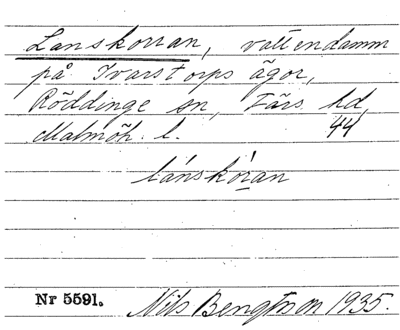 Lanskorran, vattendamm
på Ivarstorps ägor,
Röddinge sn, Färs hd,
Malmöh. l. 44
lánskòran
Nr 5591. Nils Bengtsson 1935.